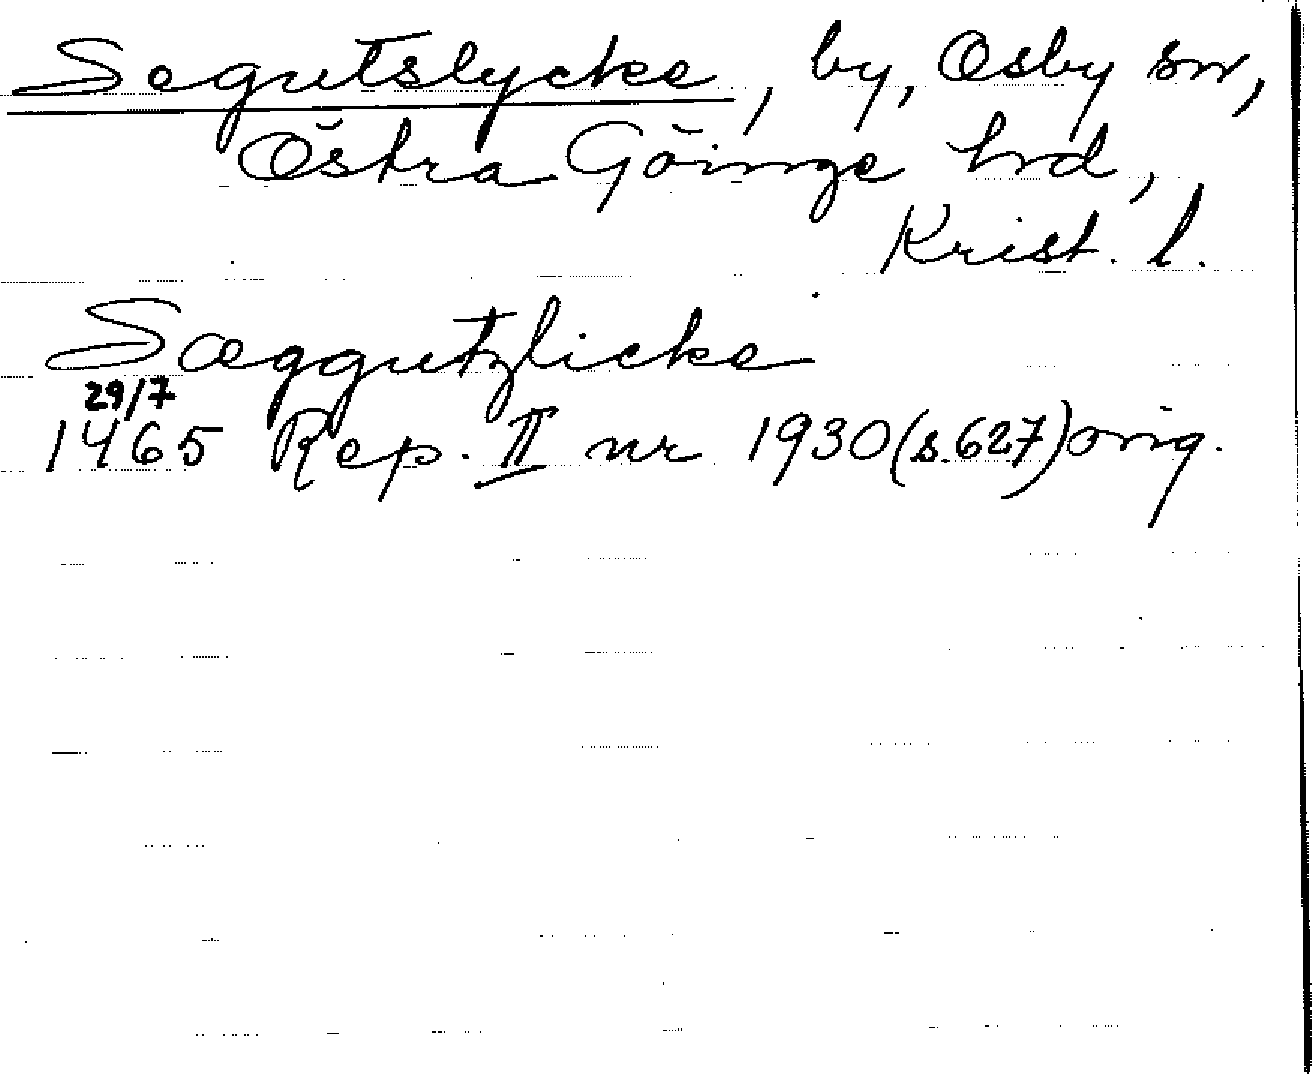 Segutslycke, by, Osby sn,
Östra Göinge hrd,
Krist. l.
Sæggutzlicke
29/7
1465 Rep. II nr 1930 (s. 627) orig.